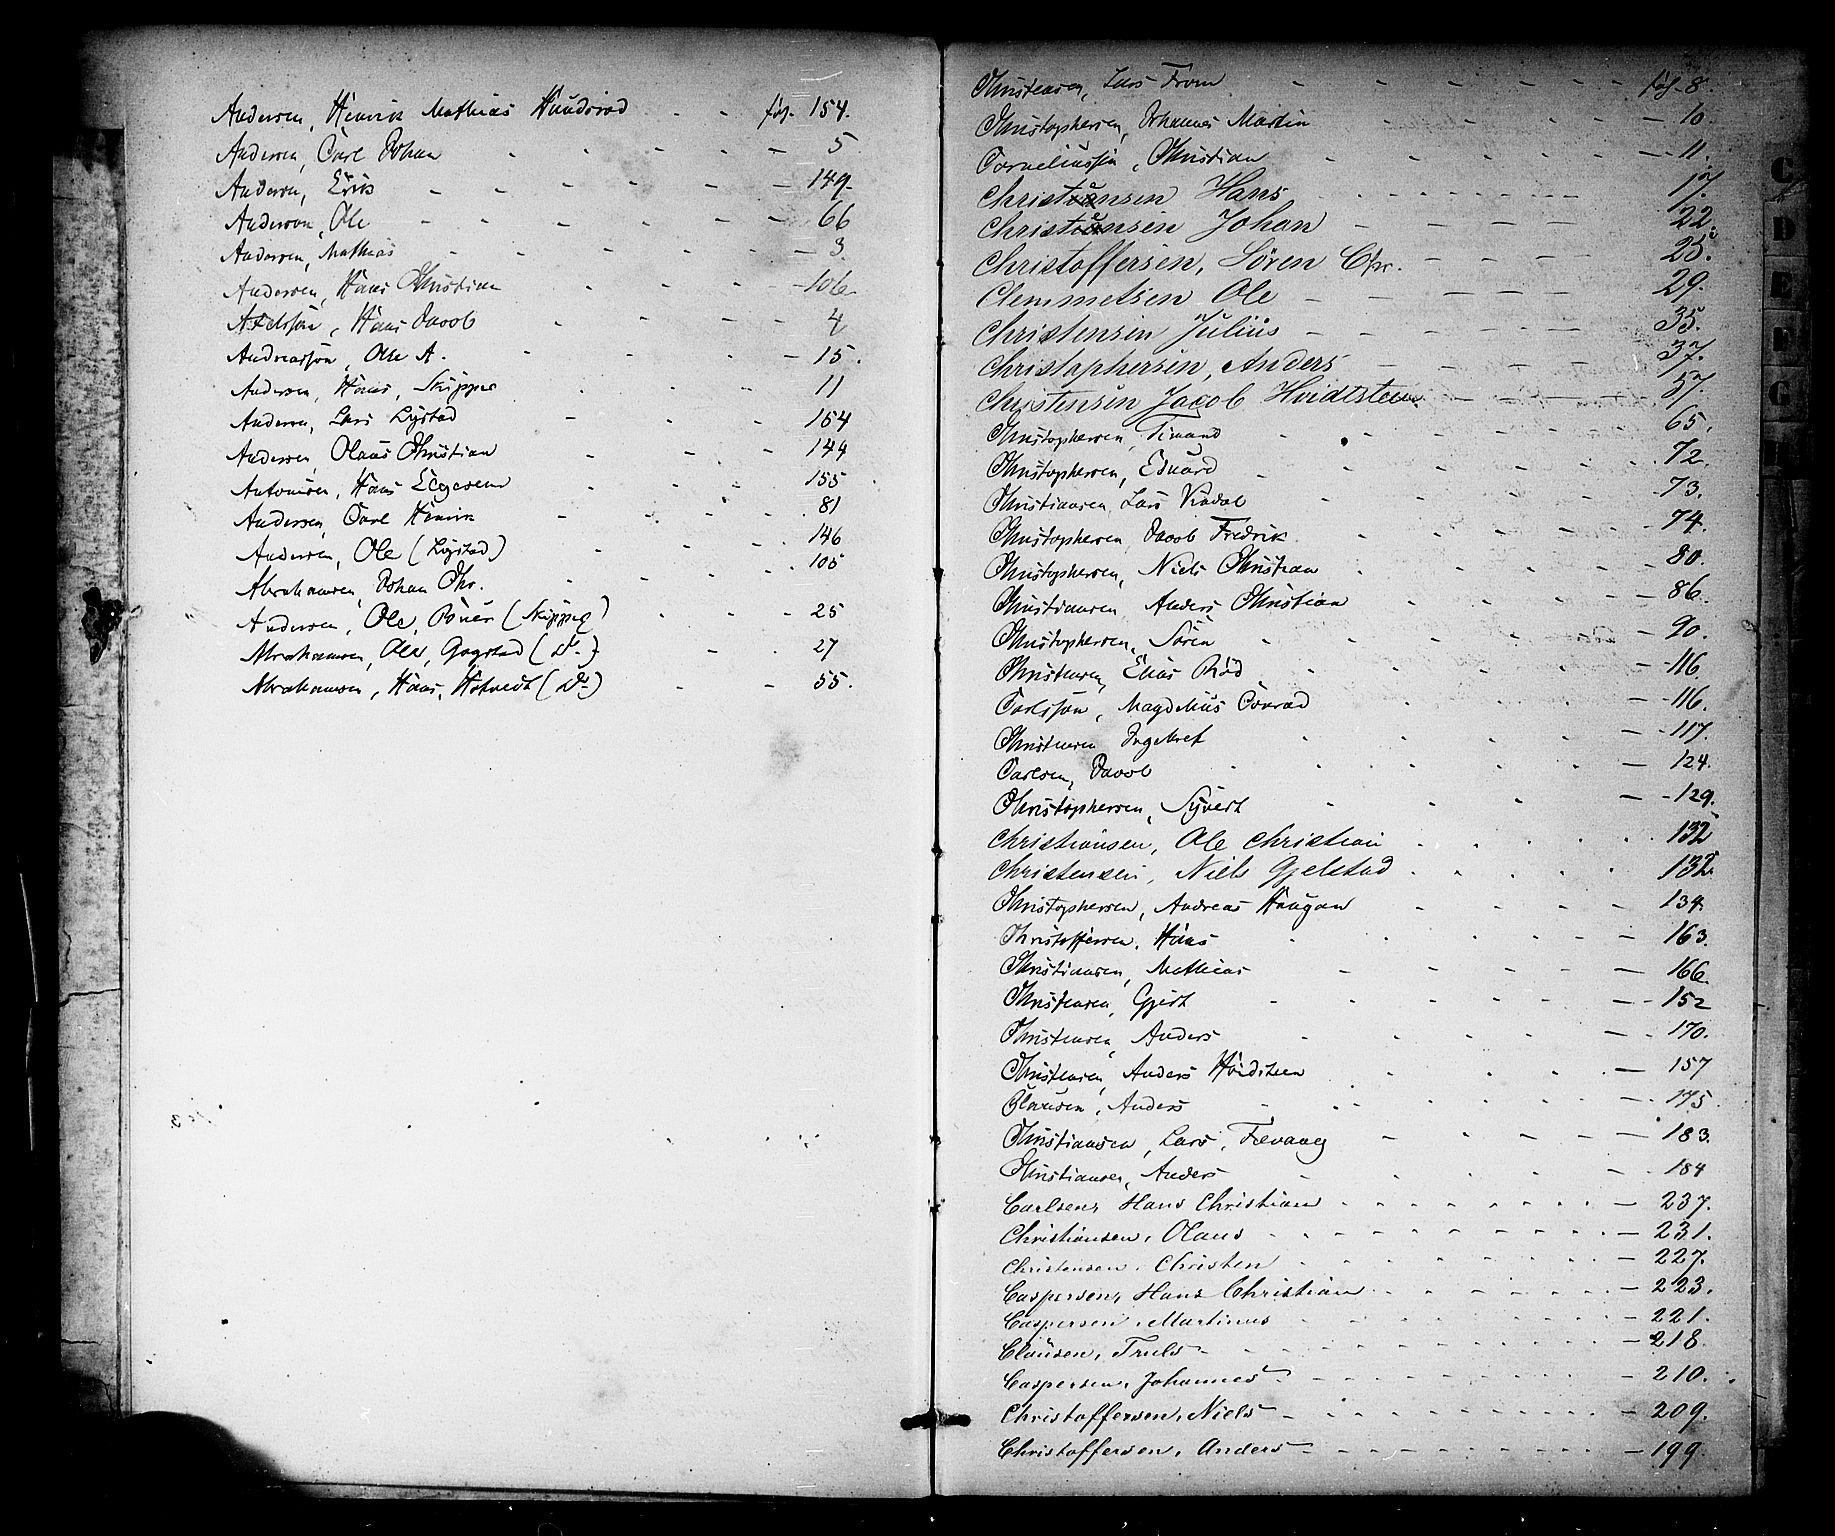 Andersen, Henrik Mathias Hundsrød - - fol. 154.
Andersen, Carl Johan - - - - - 5
Andersen, Erik - - - - - 149.
Andersen, Ole - - - - - 66
Andersen, Mathias - - - - 3.
Andersen, Hans Christian - - - - 106.
Axelssøn, Hans Jacob - - - - 4
Andreassøn, Ole A. - - - - 15.
Andersen, Hans, Skipper - - - 11
Andersen, Lars Lystad - - - 164
Andersen Olaus Christian - - - 144
Antonisen, Hans - - - 155
Andersen, Carl Henrik - - - - 81
Andersen, Ole (Lystad) - - - 146
Abrahamsen, Johan Chr. - - - - 105
Andersen, Ole, (Skipper) - - - 25
Abrahamsen, Ole, Gogstad (do-) - - 27
Abrahamsen, Hans, Hotvedt (do-) - - 55.
Christensen, Lars From - - - - - - fol. 8.
Christophersen, Johannes Martin - - - - 10.
Corneliussen, Christian - - - - - 11.
Christensen Hans - - - - - 17.
Christensen Johan - - - - - 22.
Christoffersen, Sören Chr. - - - - 25.
Clemmetsen Ole - - - - - 29.
Christensen Julius - - - - - 35.
Christophersen, Anders - - - - 37.
Christensen Jacob Hvidtsteen - - - - 57
Christophersen, - - - - 65.
Christophersen, Eduard - - - - - 72.
Christiansen Lars - - - - 73.
Christophersen, Jacob Fredrik - - - - 74.
Christophersen, Niels Christian - - - - 80.
Christiansen, Anders Christian - - - - 86.
Christophersen, Sören - - - - - 90.
Christensen, Elias Röd - - - - - 116.
Carlssøn, Magdelius Conrad - - - - 116.
Christensen Ingebret - - - - - 117.
Carlsen, Jacob - - - - - 124.
Christophersen, Syvert - - - - 129.
Christiansen, Ole Christian - - - - 132
Christensen, Niels Gjelstad - - - - 132.
Christophersen, Andreas Haugan - - - - 134.
Christoffersen, Hans - - - - - 163.
Christiansen, Mathias - - - - - 166.
Christensen, Gjert - - - - - 152
Christensen, Anders - - - - - 170.
Christensen, Anders Hvidsteen - - - - 157
Clausen, Anders - - - - - 175
Christiansen, Lars, Fevang - - - - 183.
Christiansen, Anders - - - - 184
Carlsen, Hans Christian - - - - - 237.
Christiansen, Olaus - - - - - 231.
Christensen, Christen - - - - - 227.
Caspersen, Hans Christian - - - - 223.
Caspersen, Martinus - - - - - 221.
Clausen, Truls - - - - - 218.
Caspersen, Johannes - - - - - 210.
Christoffersen, Niels - - - - - 209.
Christoffersen, Anders - - - - - 199.
C
D
E
F
G
H